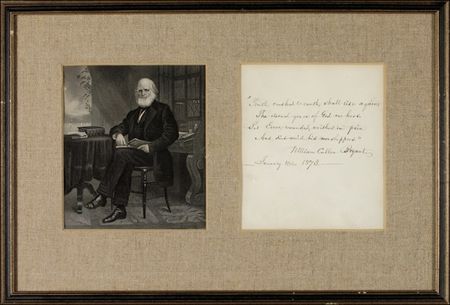 "Truth crushed to earth, shall rise again;
The eternal years of God are hers;
But Error, wounded, writhes in pain
And dies amid his worshippers."
William Cullen Bryant.
January